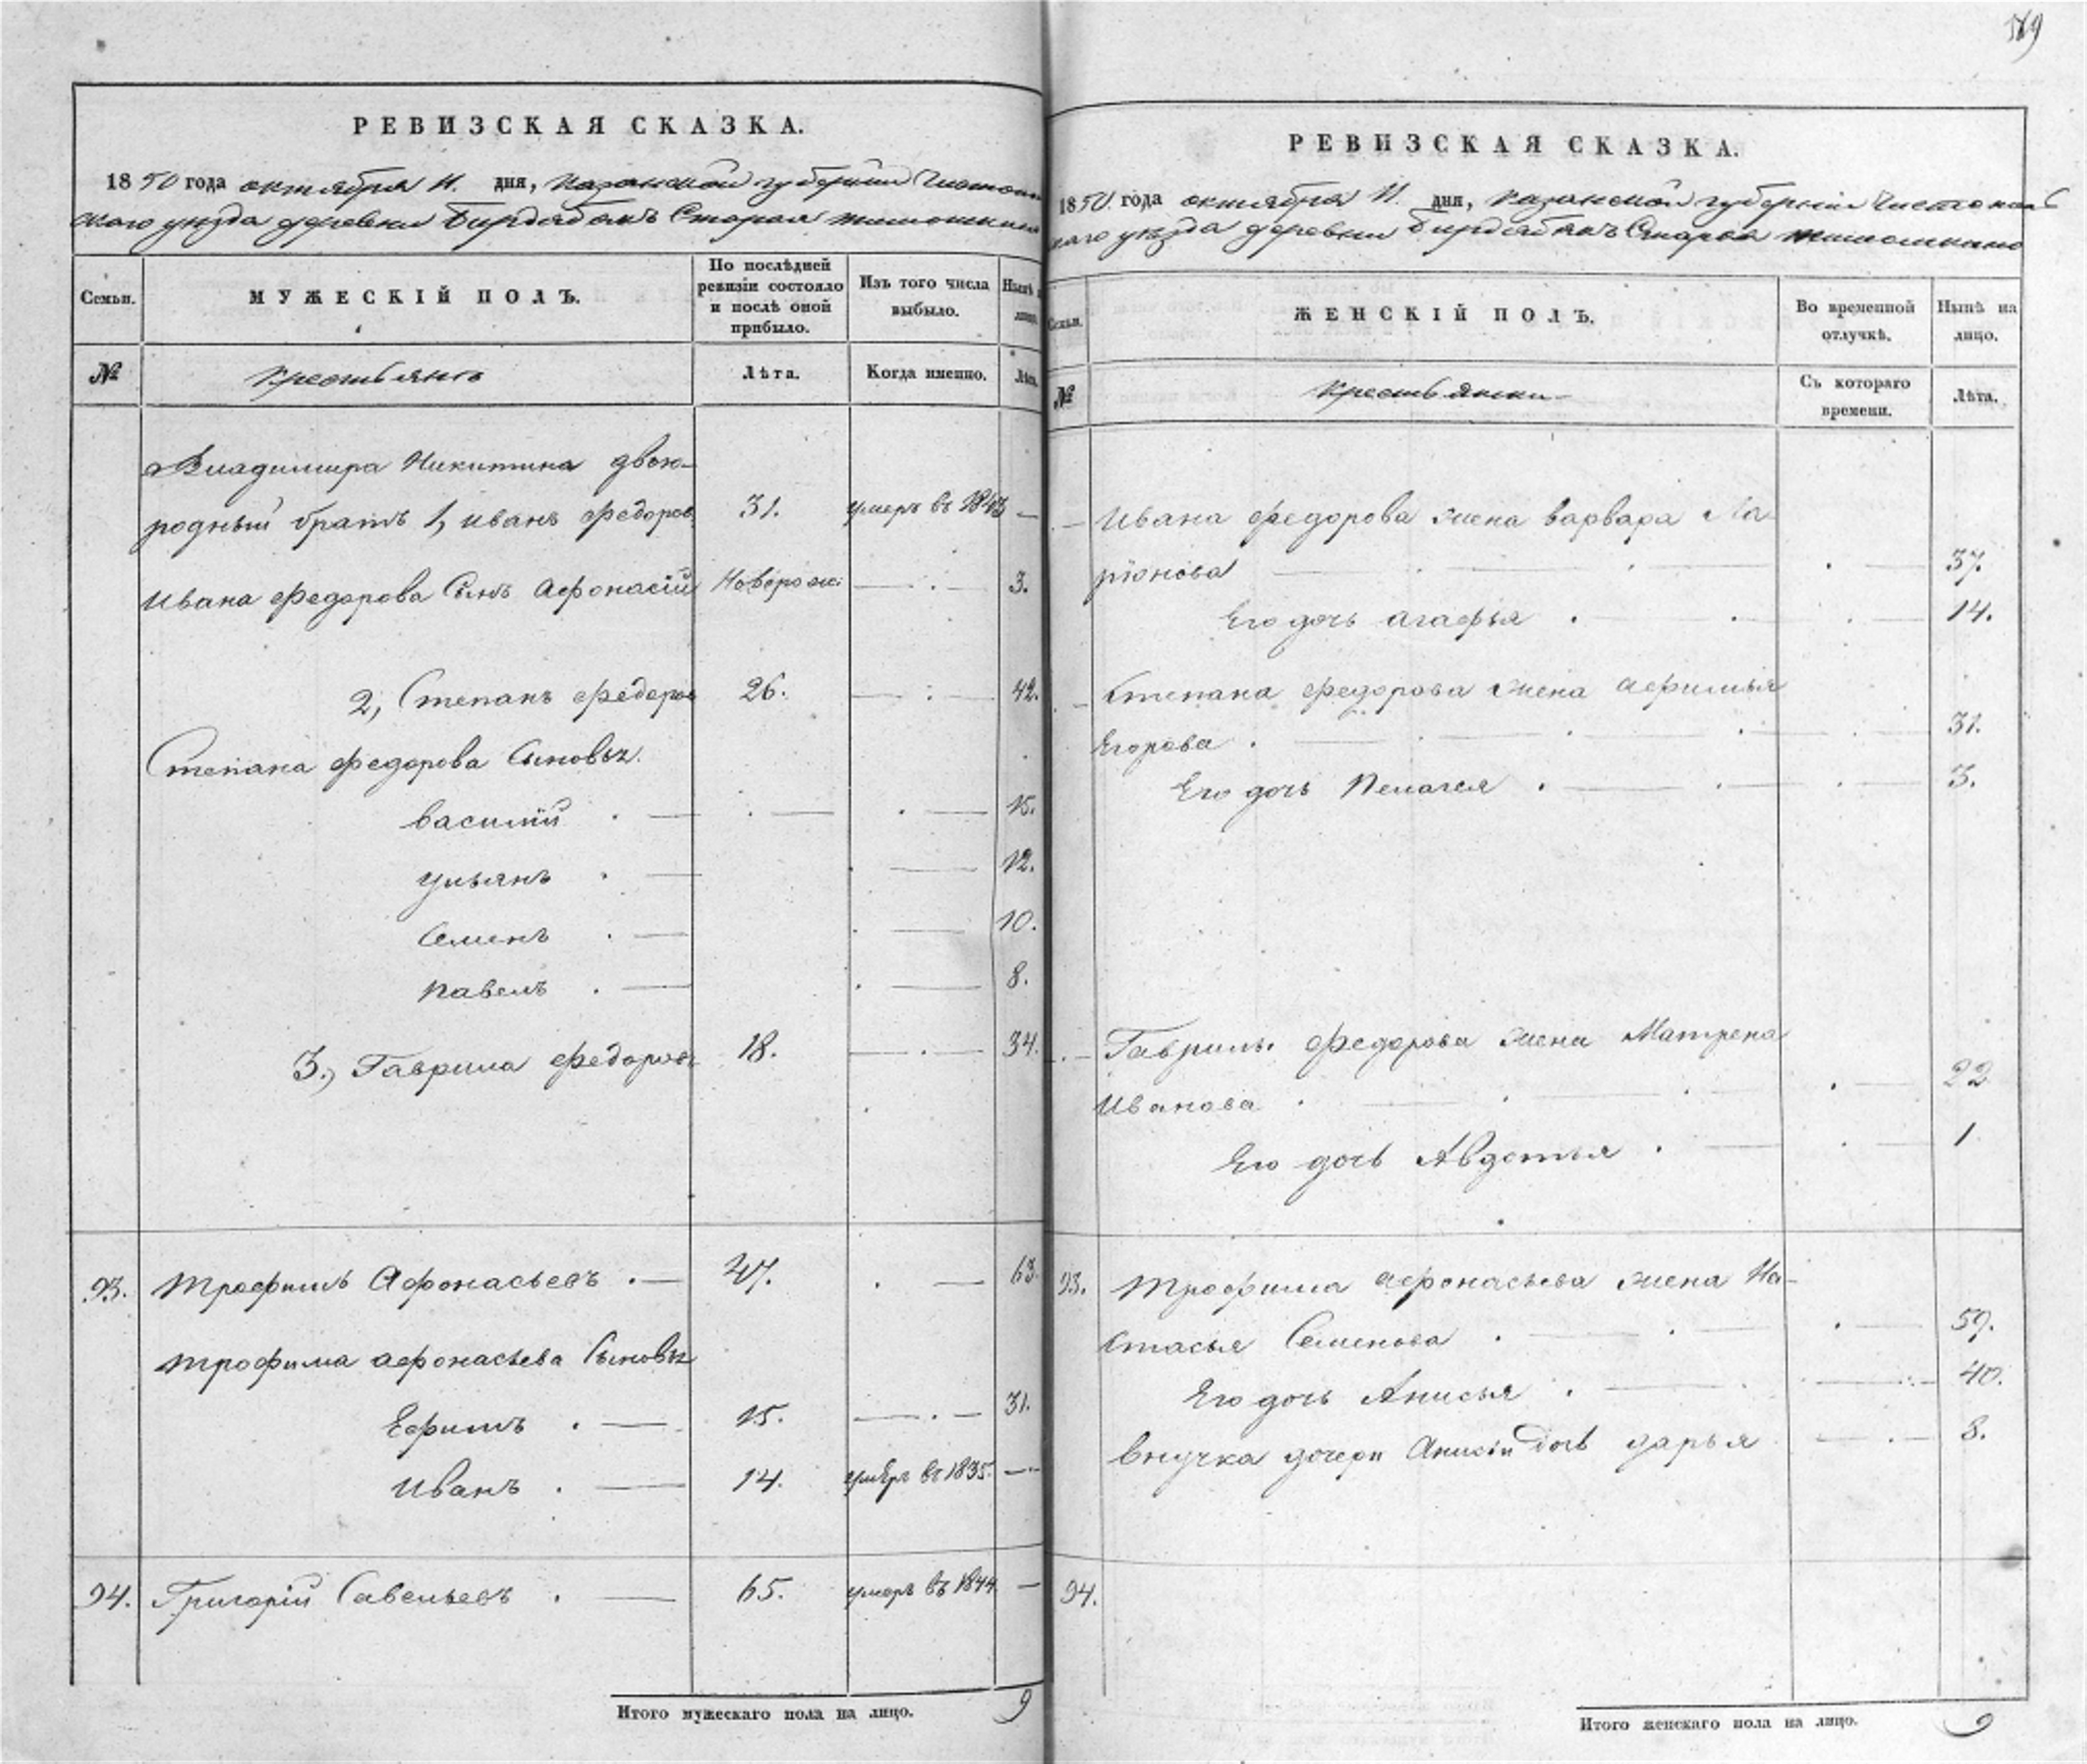 РЕВИЗСКАЯ СКАЗКА.
1850 года октября 11. дня, Казанской губернии Чистополь
скаго уезда деревни Бирдебякъ Старая тимошкино
Семьи.
МУЖЕСКІЙ ПОЛЪ.
По послѣдней ревизіи состояло и послѣ оной прибыло.
Изъ того числа выбыло.
Нынѣ на лицо.
№
Крестьянъ
Лѣта.
Когда именно.
Лѣта.
Владимира Никитина двою-
родный братъ 1, иванъ федоровъ 31. умеръ въ 1843 —
Ивана федорова Сынъ Афонасій Новорож: — . — 3.
2, Степанъ федоровъ 26. — . — 42.
Степана федорова Сыновья.
василій . — . — . — 15.
ульянъ . — . — 12.
Семенъ . — . — 10.
павелъ . — . — 8.
3., Гаврила федоровъ 18. — . — 34.
93. Трофимъ Афонасьевъ . — 47. . — 63.
трофима афонасьева Сыновья
Ефимъ . — 15. — . — 31.
Иванъ . — 14. умеръ въ 1835. —
94. Григорій Савельевъ . — 65. умеръ въ 1844 —
Итого мужескаго пола на лицо. 9
РЕВИЗСКАЯ СКАЗКА.
1850. года октября 11. дня, Казанской губерніи Чистополь
скаго уезда деревни Бирдебякъ Старая тимошкино
Семьи.
ЖЕНСКІЙ ПОЛЪ.
Во временной отлучкѣ.
Нынѣ на лицо.
№
Крестьянки
Съ котораго времени.
Лѣта.
Ивана федорова жена варвара Ла-
ріонова . — 37.
Его дочь агафья . — . — 14.
Степана федорова жена афимья
Егорова . — . — 31.
Его дочь Пелагея . — . — 3.
Гаврилы федорова жена Матрена
Иванова . — . — 22
Его дочь Авдотья . — . — 1
93. Трофима афонасьева жена На-
стасья Семенова . — . — 59.
Его дочь Анисья . — . — 40.
внучка дочери Анисьи дочь дарья — . — 8.
94.
Итого женскаго пола на лицо. 9